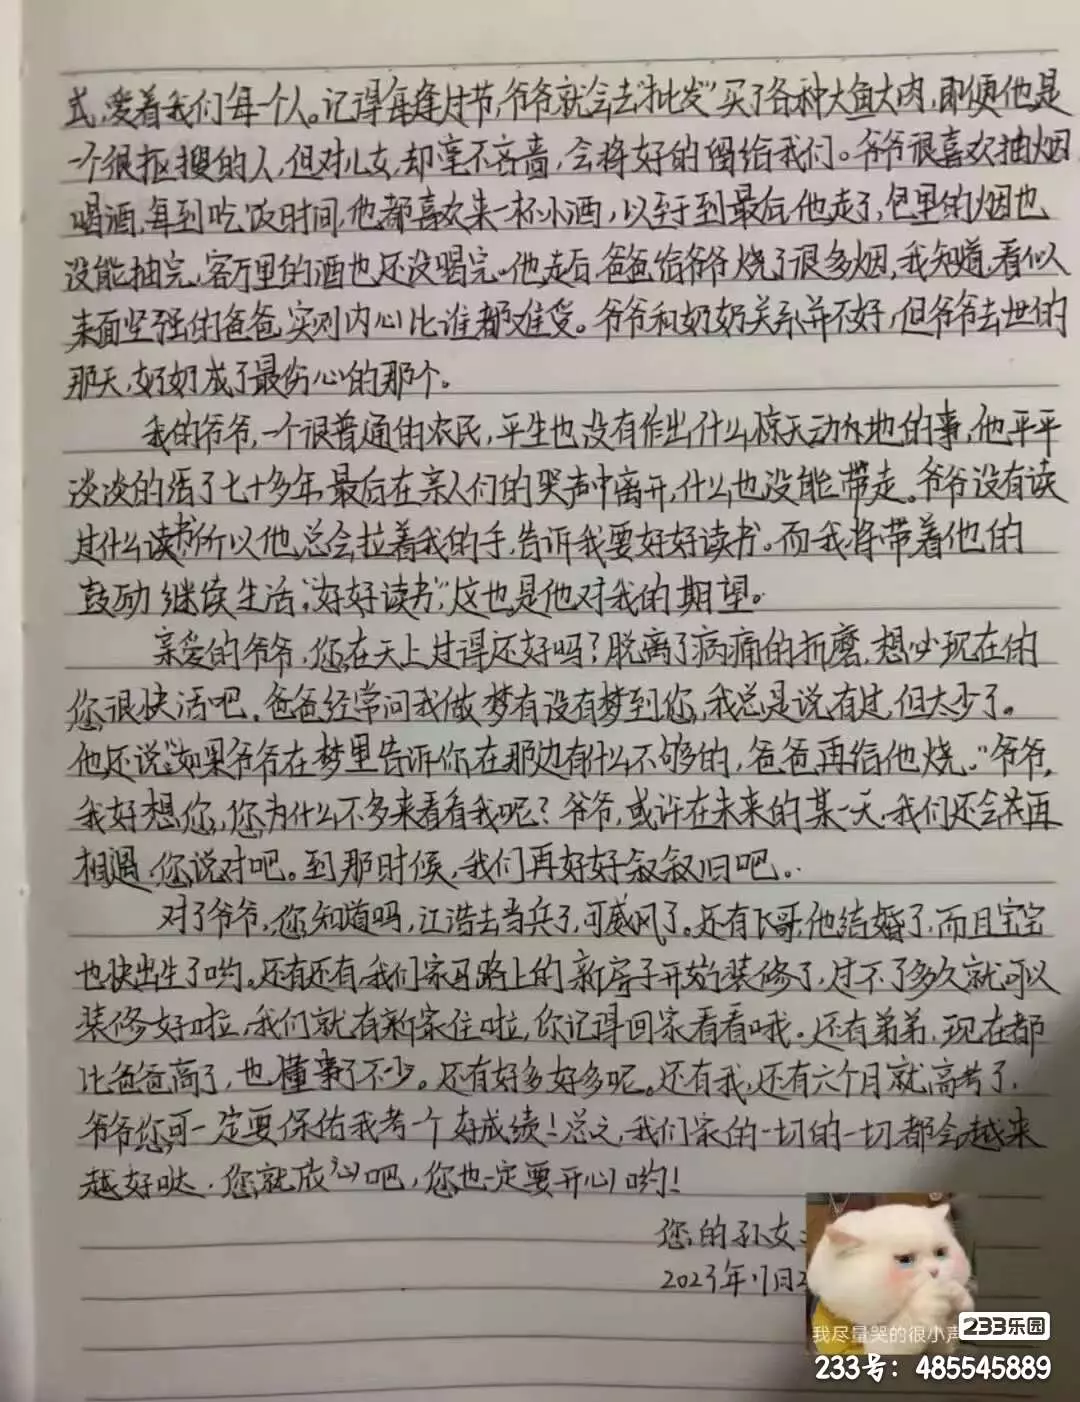 式,爱着我们每一个人。记得每逢过节,爷爷就会去“批发”买了各种大鱼大肉,即便他是
一个很抠搜的人,但对儿女,却毫不吝啬,会将好的留给我们。爷爷很喜欢抽烟
喝酒,每到吃饭时间,他都喜欢来一杯小酒,以至于到最后,他走了,包里的烟也
没能抽完,客厅里的酒也还没喝完。他走后,爸爸给爷爷烧了很多烟,我知道,看似
表面坚强的爸爸,实则内心比谁都难受。爷爷和奶奶关系并不好,但爷爷去世的
那天,奶奶成了最伤心的那个。
我的爷爷,一个很普通的农民,平生也没有作出什么惊天动地的事,他平平
淡淡的活了七十多年,最后在亲人们的哭声中离开,什么也没能带走。爷爷没有读
过什么读书所以他总会拉着我的手,告诉我要好好读书。而我将带着他的
鼓励继续生活,“好好读书”,这也是他对我的期望。
亲爱的爷爷,您在天上过得还好吗?脱离了病痛的折磨,想必现在的
您很快活吧。爸爸经常问我做梦有没有梦到您,我总是说有过,但太少了。
他还说“如果爷爷在梦里告诉你在那边有什么不够的,爸爸再给他烧。”爷爷,
我好想您,您为什么不多来看看我呢?爷爷,或许在未来的某一天,我们还会再
相遇,您说对吧。到那时候,我们再好好叙叙旧吧。
对了爷爷,您知道吗,江浩去当兵了,可威风了。还有飞哥,他结婚了,而且宝宝
也快出生了哟。还有还有,我们家马路上的新房子开始装修了,过不了多久就可以
装修好啦,我们就有新家住啦,你记得回家看看哦。还有弟弟,现在都
比爸爸高了,也懂事了不少。还有好多好多呢。还有我,还有六个月就高考了,
爷爷您可一定要保佑我考一个好成绩!总之,我们家的一切的一切都会越来
越好哒,您就放心吧,您也一定要开心哟!
您的孙女:
2023年11月2
我尽量哭的很小声
233乐园
233号:485545889